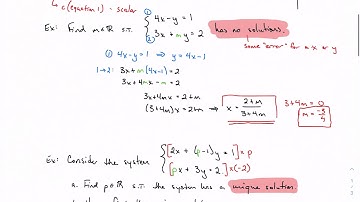 ↳ c(equation 1) - scalar
Ex: Find m∈ℝ s.t. { ① 4x - y = 1
② 3x + my = 2 has no solutions.
some "error" for a x or y
① 4x - y = 1 ⇒ y = 4x - 1
1→2: 3x + m(4x-1) = 2
3x + 4mx - m = 2
3x + 4mx = 2 + m
(3+4m)x = 2+m ⇒ x = 2+m / 3+4m
3+4m = 0
m = -3/4
Ex: Consider the system { [2x + (p-1)y = 1] × p
[px + 3y = 2] × (-2)
a. Find p∈ℝ s.t. the system has a unique solution.